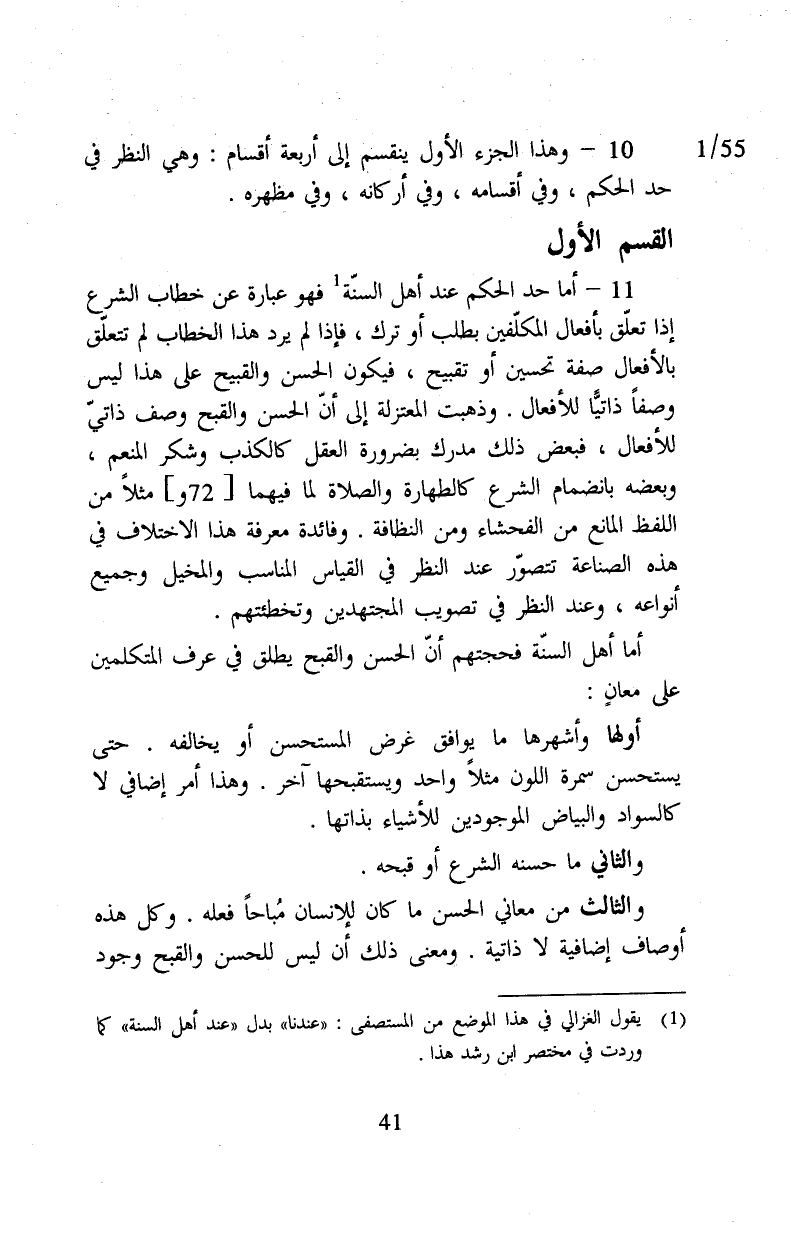 1/55 10 – وهذا الجزء الأول ينقسم إلى أربعة أقسام : وهي النظر في
حد الحكم ، وفي أقسامه ، وفي أركانه ، وفي مظهره .
القسم الأول
11 – أما حد الحكم عند أهل السنّة1 فهو عبارة عن خطاب الشرع
إذا تعلّق بأفعال المكلّفين بطلب أو ترك ، فإذا لم يرد هذا الخطاب لم تتعلّق
بالأفعال صفة تحسين أو تقبيح ، فيكون الحسن والقبيح على هذا ليس
وصفاً ذاتيًّا للأفعال . وذهبت المعتزلة إلى أنّ الحسن والقبح وصف ذاتيّ
للأفعال ، فبعض ذلك مدرك بضرورة العقل كالكذب وشكر المنعم ،
وبعضه بانضمام الشرع كالطهارة والصلاة لما فيهما [ 72و] مثلاً من
اللفظ المانع من الفحشاء ومن النظافة . وفائدة معرفة هذا الاختلاف في
هذه الصناعة تتصوّر عند النظر في القياس المناسب والمخيل وجميع
أنواعه ، وعند النظر في تصويب المجتهدين وتخطئتهم .
أما أهل السنّة فحجتهم أنّ الحسن والقبح يطلق في عرف المتكلمين
على معانٍ :
أولها وأشهرها ما يوافق غرض المستحسن أو يخالفه . حتى
يستحسن سمرة اللون مثلاً واحد ويستقبحها آخر . وهذا أمر إضافي لا
كالسواد والبياض الموجودين للأشياء بذاتها .
والثاني ما حسنه الشرع أو قبحه .
والثالث من معاني الحسن ما كان للإنسان مُباحاً فعله . وكل هذه
أوصاف إضافية لا ذاتية . ومعنى ذلك أن ليس للحسن والقبح وجود
(1) يقول الغزالي في هذا الموضع من المستصفى : «عندنا» بدل «عند أهل السنة» كما
وردت في مختصر ابن رشد هذا .
41